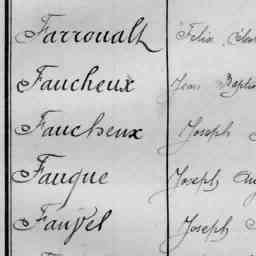 Farroualt Felix
Faucheux Jean Baptis
Faucheux Joseph
Fauque Joseph Aug
Fauvel Joseph